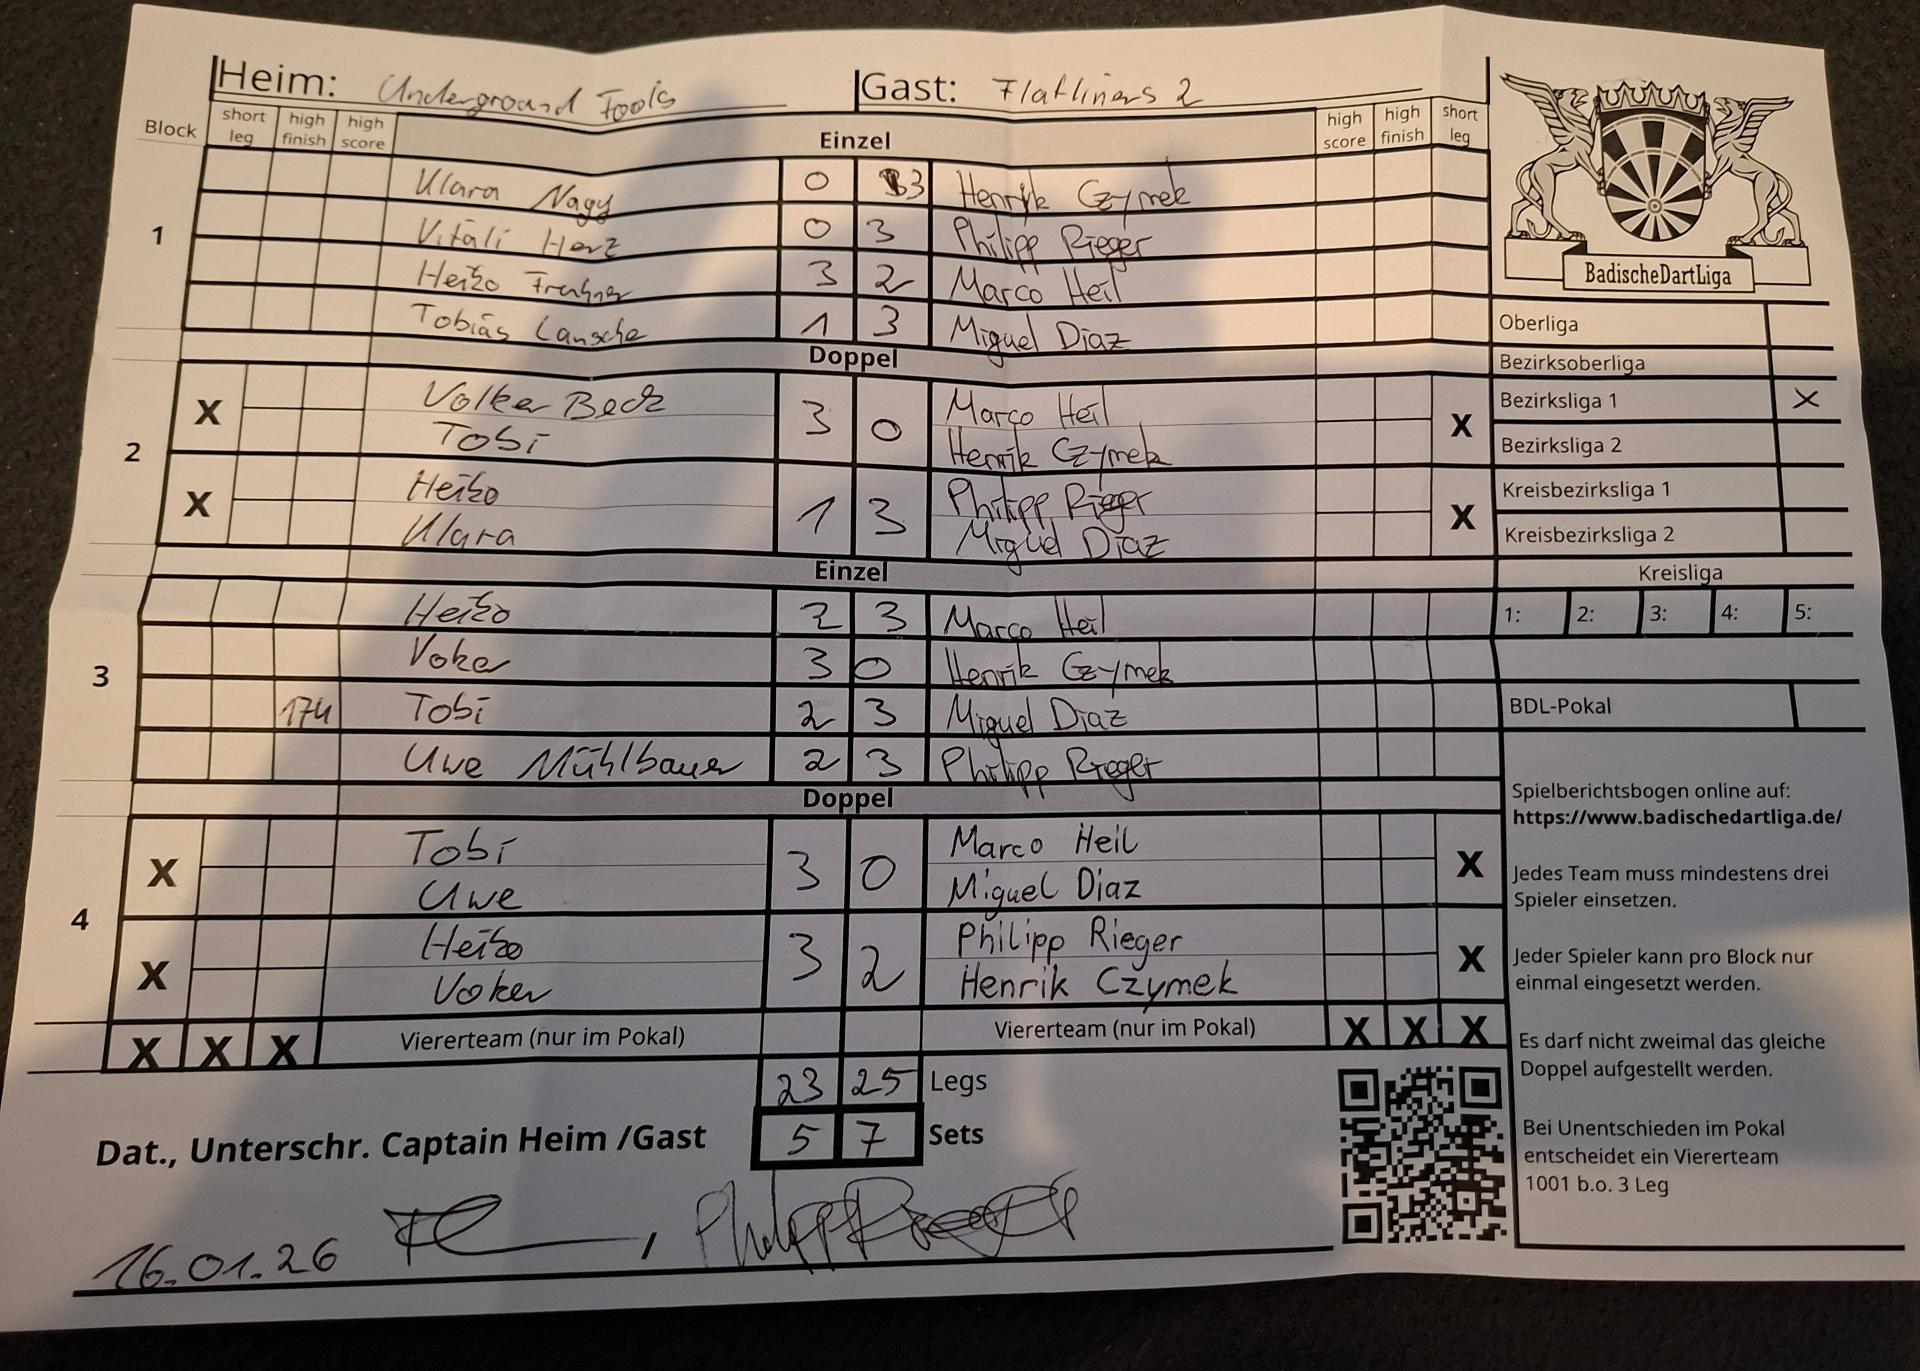 Heim: Underground Fools Gast: Flatliners 2
Block short leg high finish high score Einzel high score high finish short leg
1
Klara Nagy 0 3 Henrik Czymek
Vitali Herz 0 3 Philipp Rieger
Heiko 3 2 Marco Heil
Tobias 1 3 Miguel Diaz
Doppel
2
X Volker Beck 3 0 Marco Heil X
Tobi Henrik Czymek
X Heiko 1 3 Philipp Rieger X
Klara Miguel Diaz
Einzel
3
Heiko 2 3 Marco Heil
Voker 3 0 Henrik Czymek
174 Tobi 2 3 Miguel Diaz
Uwe Mühlbauer 2 3 Philipp Rieger
Doppel
4
X Tobi 3 0 Marco Heil X
Uwe Miguel Diaz
X Heiko 3 2 Philipp Rieger X
Voker Henrik Czymek
X X X Viererteam (nur im Pokal) Viererteam (nur im Pokal) X X X
23 25 Legs
Dat., Unterschr. Captain Heim /Gast 5 7 Sets
16.01.26 , Philipp
BadischeDartLiga
Oberliga
Bezirksoberliga
Bezirksliga 1 X
Bezirksliga 2
Kreisbezirksliga 1
Kreisbezirksliga 2
Kreisliga
1: 2: 3: 4: 5:
BDL-Pokal
Spielberichtsbogen online auf:
https://www.badischedartliga.de/
Jedes Team muss mindestens drei
Spieler einsetzen.
Jeder Spieler kann pro Block nur
einmal eingesetzt werden.
Es darf nicht zweimal das gleiche
Doppel aufgestellt werden.
Bei Unentschieden im Pokal
entscheidet ein Viererteam
1001 b.o. 3 Leg